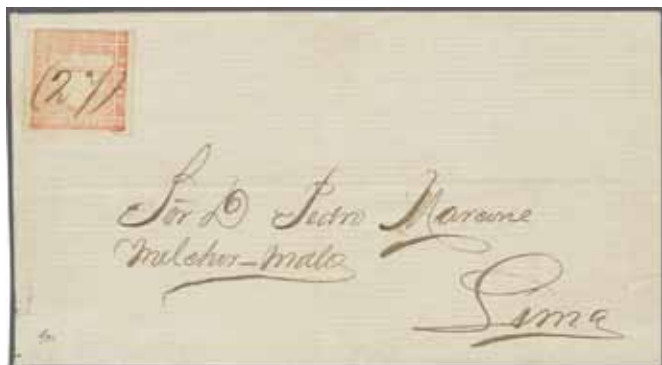 (2 %)
Sōr D Pedro Marcone
Melchor–Malo
Lima